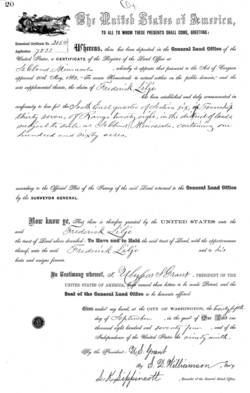 20
The United States of America,
TO ALL TO WHOM THESE PRESENTS SHALL COME, GREETING:
Homestead Certificate No.
Application
Whereas, there has been deposited in the General Land Office of the
United States, a CERTIFICATE of the Register of the Land Office at
St Cloud Minnesota, whereby it appears that pursuant to the Act of Congress
approved 20th May, 1862, "To secure Homesteads to actual settlers on the public domain," and the
acts supplemental thereto, the claim of Frederick Lilje
has been established and duly consummated in
conformity to law for the South East quarter of Section six, of Township
thirty seven, of Range twenty eight, in the district of lands
subject to sale at St Cloud Minnesota, containing one
hundred and sixty acres
according to the Official Plat of the Survey of the said Land returned to the General Land Office
by the SURVEYOR GENERAL.
Now know ye, That there is therefore granted by the UNITED STATES unto the
said Frederick Lilje
the tract of Land above described: To Have and to Hold the said tract of Land, with the appurtenances
thereof, unto the said Frederick Lilje and to his
heirs and assigns forever.
In Testimony whereof, I Ulysses S Grant, PRESIDENT OF THE
UNITED STATES OF AMERICA, have caused these letters to be made Patent, and the
Seal of the General Land Office to be hereunto affixed.
Given under my hand, at the CITY OF WASHINGTON, the twenty fifth
day of September, in the year of Our Lord one
thousand eight hundred and seventy four, and of the
Independence of the United States the ninety ninth.
By the President: U. S. Grant
By S. D. Williamson, Sec'y
S. K. Lippincott
Recorder of the General Land Office